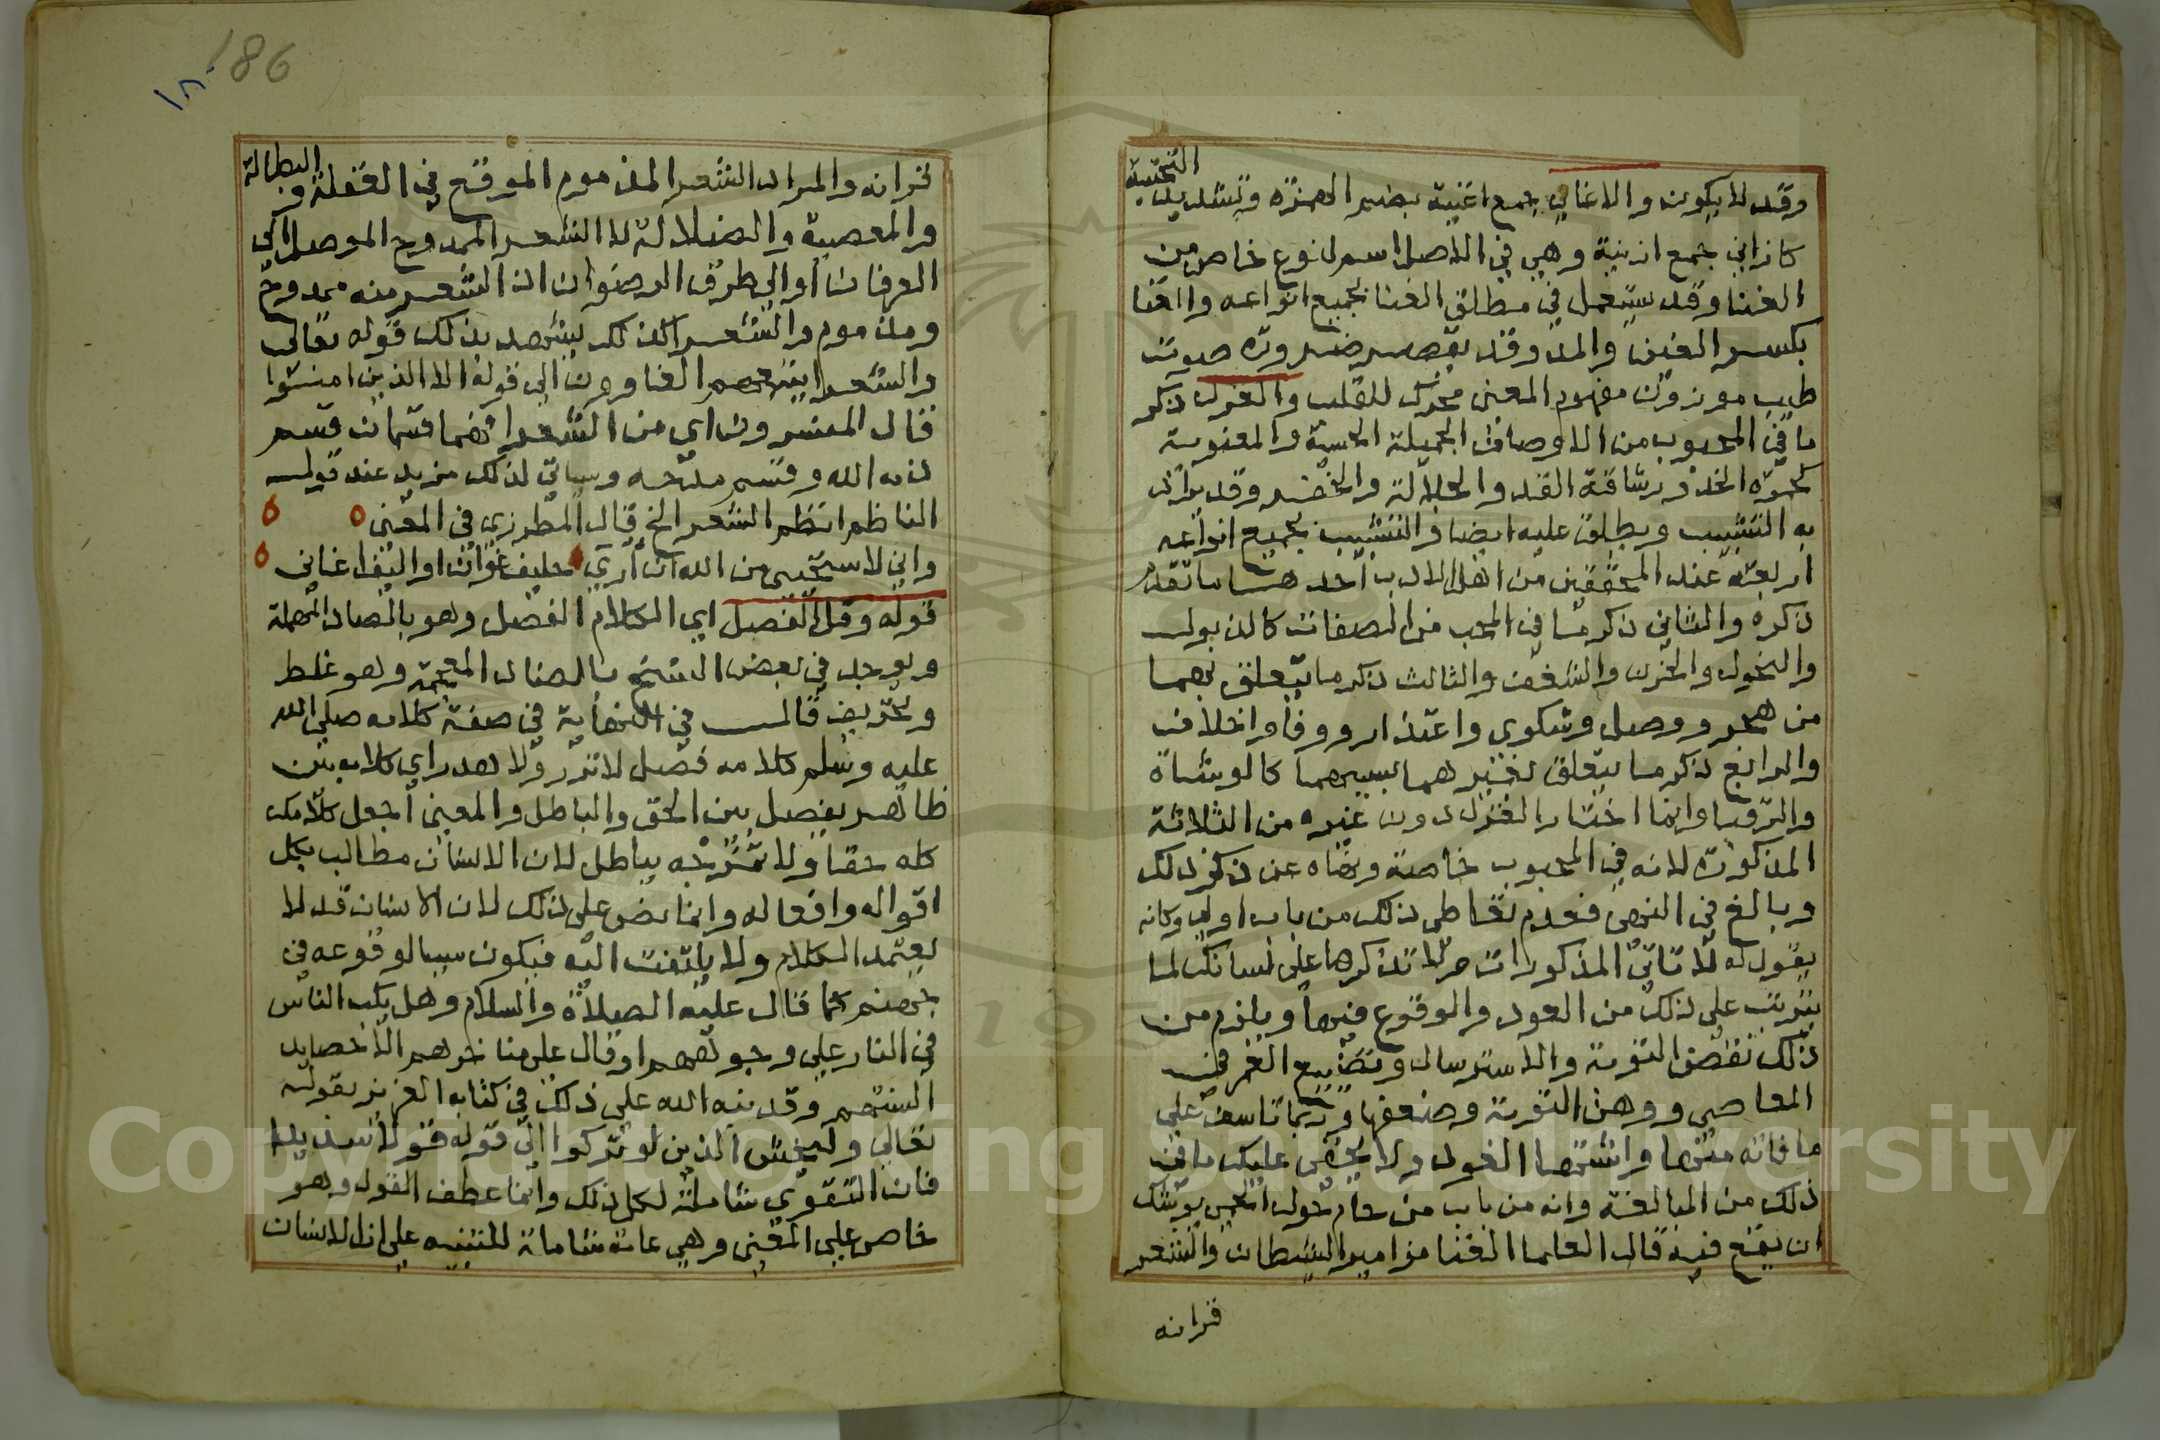 وقد لا يكون والاغاني جمع اغنية بضم الهمزة وتشديد التحتية
كازاني جمع ازنية وهي في الاصل اسم لنوع خاص من
الغنا وقد ستعمل في مطلق الغنا بجميع انواعه والغنا
بكسر الغين والمد وقد يقصر ضرورة صوت
طيب موزون مفهوم المعنى محرك للقلب والغزل ذكر
ما في المحبوب من الاوصاف الجميلة الحسية والمعنوية
كحمرة الخد ورشاقة القد والجلالة والخفر وقد يراد
به التشبيب ويطلق عليه ايضا والتشبيب بجميع انواعه
اربعة عند المحققين من اهل الادب احدها ما تقدم
ذكره والثاني ذكر ما في المحب من الصفات كالذبول
والنحول والحزن والشغف والثالث ذكر ما يتعلق بهما
من هجر ووصل وشكوى واعتذار ووفا واخلاف
والرابع ذكر ما يتعلق بغيرهما بسببهما كالوشاة
والرقبا وانما اختار الغزل دون غيره من الثلاثة
المذكورة لانه في المحبوب خاصة ونهاه عن ذكر ذلك
وبالغ في النهي فعدم تعاطي ذلك من باب اولى وكانه
يقول له لا تاتي المذكورات ولا تذكرها على لسانك لما
يترتب على ذلك من العود والوقوع فيها ويلزم من
ذلك نقض التوبة والاسترسال وتضييع العمر في
المعاصي ووهن التوبة وضعفها وربما تاسف على
ما فاته منها واشتهى القول ولا يخفى عليك ما في
ذلك من المبالغة وانه من باب من حام حول الحمى يوشك
ان يقع فيه قال العلما الغنا مزامير الشيطان والشعر
قرانه
186
١٨٠
قرانه والمراد الشعر المذموم الموقع في الغفلة والبطالة
والمعصية والضلالة لا الشعر الممدوح الموصل الى
العرفان او الى طرق الرضوان اذ الشعر منه ممدوح
ومذموم والشعرا كذلك يشهد بذلك قوله تعالى
والشعرا يتبعهم الغاوون الى قوله الا الذين امنوا
قال المفسرون اي من الشعرا فهما قسمان قسم
ذمه الله وقسم مدحه وسياتي لذلك مزيد عند قول
الناظم انظم الشعر الخ قال المطرزي في المعنى
واني لاستحيي من الله ان ارى حليف غوان او اليف اغاني
قوله وقل الفصل اي الكلام الفصل وهو بالصاد المهملة
ويوجد في بعض النسخ بالضاد المعجمة وهو غلط
وتحريف قال في النهاية في صفة كلامه صلى الله
عليه وسلم كلامه فصل لا نزر ولا هذر اي كلام بين
ظاهر يفصل بين الحق والباطل والمعنى اجعل كلامك
كله حقا ولا تمزجه بباطل لان الانسان مطالب بكل
اقواله وافعاله وانما نص على ذلك لان الانسان قد لا
يعتمد الكلام ولا يلتفت اليه فيكون سببا لوقوعه في
جهنم كما قال عليه الصلاة والسلام وهل يكب الناس
في النار على وجوههم او قال على مناخرهم الا حصايد
السنتهم وقد نبه الله على ذلك في كتابه العزيز بقوله
تعالى وليخش الذين لو تركوا الى قوله قولا سديدا
فان التقوى شاملة لكل ذلك وانما عطف القول وهو
خاص على المعنى وهي عامة شاملة للتنبيه على ان للانسان